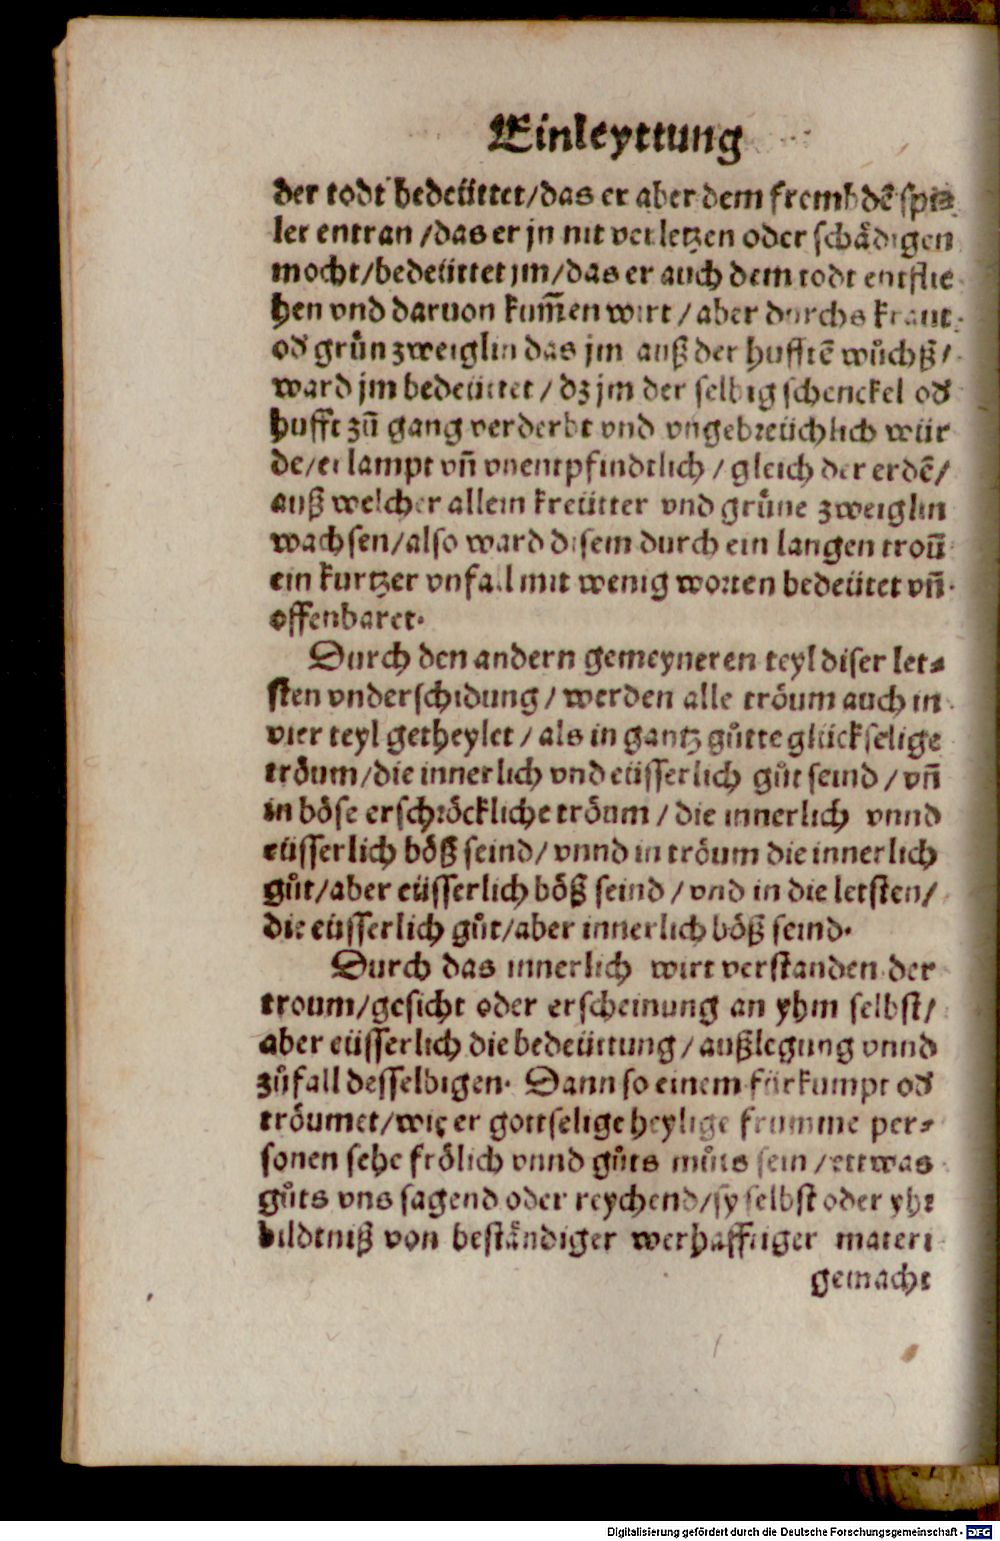 Einleyttung
der todt bedeüttet/das er aber dem frembdē spi⸗
ler entran/das er jn nit verletzen oder schådigen
mocht/bedeüttet jm/das er auch dem todt entflie
hen vnd daruon kum̅en wirt/aber durchs kraut
od̕ grůn zweiglin das jm auß der hufftē wůchß/
ward jm bedeüttet/dz jm der selbig schenckel od̕
hufft zů gang verderbt vnd vngebreüchlich wür
de/erlampt vn̅ vnentpfindtlich/gleich der erdē/
auß welcher allein kreütter vnd grůne zweiglin
wachsen/also ward disem durch ein langen troum̅
ein kurtzer vnfall mit wenig worten bedeütet vn̅
offenbaret.
Durch den andern gemeyneren teyl diser let⸗
sten vnderschidung/werden alle tröum auch in
vier teyl getheylet/als in gantz gůtte glückselige
tröum/die innerlich vnd eüsserlich gůt seind/vn̅
in böse erschröckliche tröum/die innerlich vnnd
eüsserlich böß seind/vnnd in tröum die innerlich
gůt/aber eüsserlich böß seind/vnd in die letsten/
die eüsserlich gůt/aber innerlich böß seind.
Durch das innerlich wirt verstanden der
troum/gesicht oder erscheinung an yhm selbst/
aber eüsserlich die bedeüttung/außlegung vnnd
zůfall desselbigen. Dann so einem fürkumpt od̕
tröumet/wie er gottselige heylige frumme per⸗
sonen sehe frölich vnnd gůts můts sein/ettwas
gůts vns sagend oder reychend/sy selbst oder yhr
bildtniß von beståndiger werhafftiger materi
gemacht
Digitalisierung gefördert durch die Deutsche Forschungsgemeinschaft - DFG